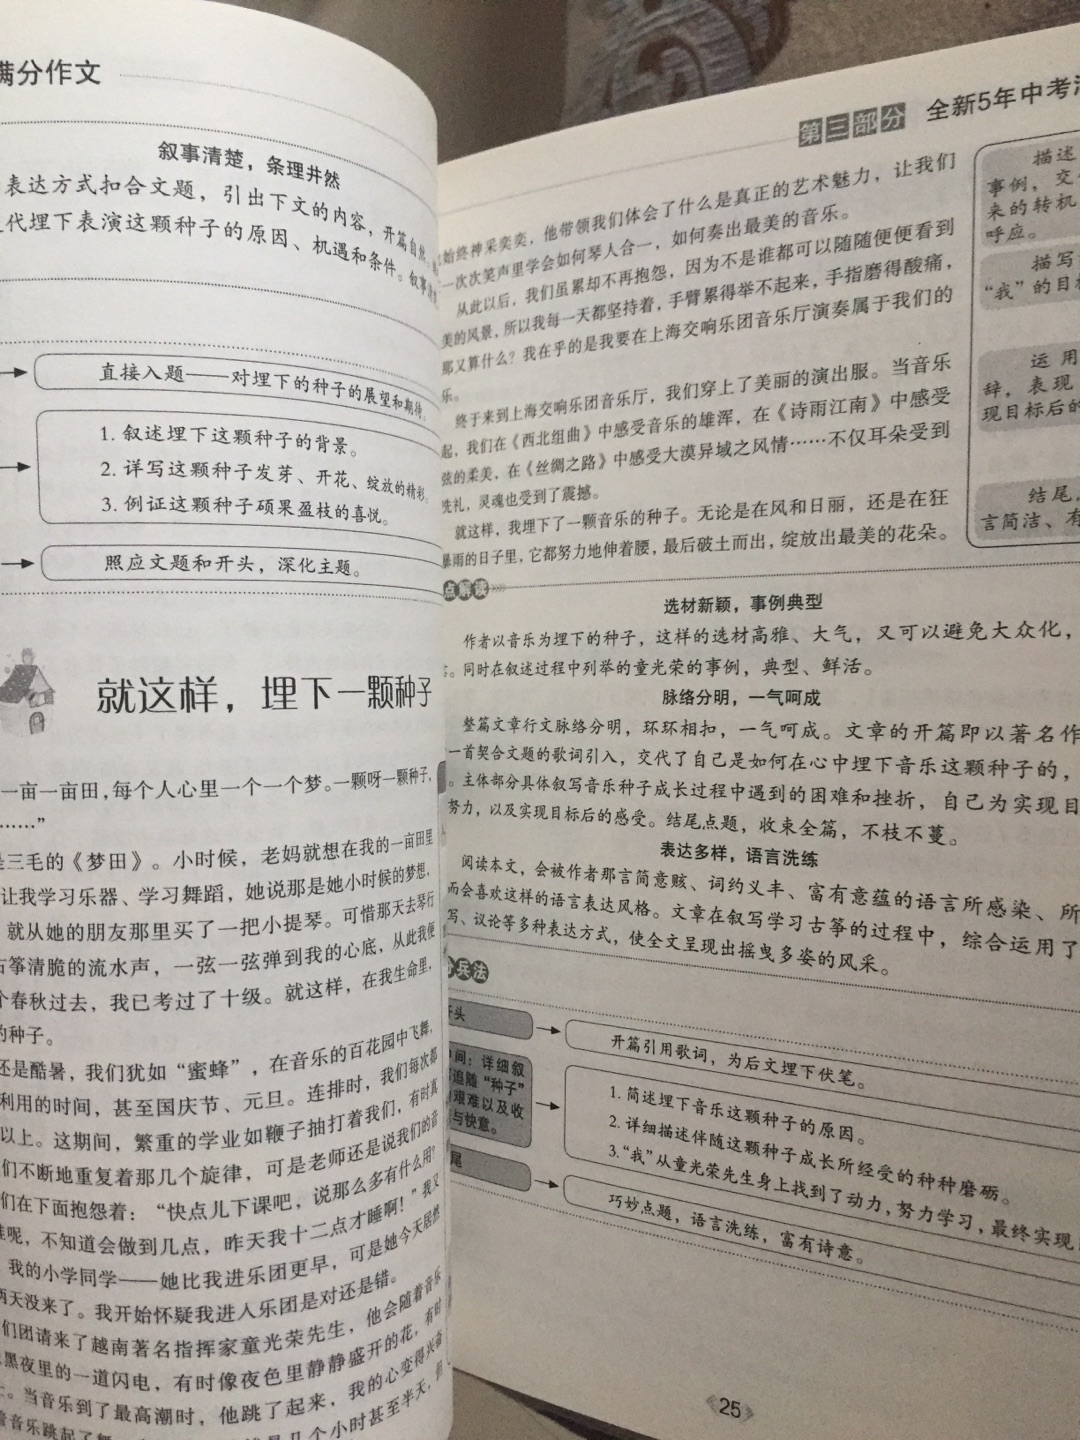 满分作文
叙事清楚，条理井然
表达方式扣合文题，引出下文的内容，开篇自然。
代埋下表演这颗种子的原因、机遇和条件。叙事
直接入题——对埋下的种子的展望和期待。
1. 叙述埋下这颗种子的背景。
2. 详写这颗种子发芽、开花、绽放的精彩。
3. 例证这颗种子硕果盈枝的喜悦。
照应文题和开头，深化主题。
就这样，埋下一颗种子
一亩一亩田，每个人心里一个一个梦。一颗呀一颗种子，
……”
是三毛的《梦田》。小时候，老妈就想在我的一亩田里
让我学习乐器、学习舞蹈，她说那是她小时候的梦想，
就从她的朋友那里买了一把小提琴。可惜那天去琴行
古筝清脆的流水声，一弦一弦弹到我的心底，从此我便
个春秋过去，我已考过了十级。就这样，在我生命里，
的种子。
还是酷暑，我们犹如“蜜蜂”，在音乐的百花园中飞舞，
利用的时间，甚至国庆节、元旦。连排时，我们每次都
以上。这期间，繁重的学业如鞭子抽打着我们，有时真
们不断地重复着那几个旋律，可是老师还是说我们的音
们在下面抱怨着：“快点儿下课吧，说那么多有什么用？
谁呢，不知道会做到几点，昨天我十二点才睡啊！”我又
我的小学同学——她比我进乐团更早，可是她今天居然
两天没来了。我开始怀疑我进入乐团是对还是错。
们团请来了越南著名指挥家童光荣先生，他会随着音乐
黑夜里的一道闪电，有时像夜色里静静盛开的花，有时
。当音乐到了最高潮时，他跳了起来，我的心变得兴奋
着音乐跳起了舞
几个小时甚至半天，但
第三部分 全新5年中考满
始终神采奕奕，他带领我们体会了什么是真正的艺术魅力，让我们
一次次笑声里学会如何琴人合一，如何奏出最美的音乐。
从此以后，我们虽累却不再抱怨，因为不是谁都可以随随便便看到
美的风景，所以我每一天都坚持着，手臂累得举不起来，手指磨得酸痛，
那又算什么？我在乎的是我要在上海交响乐团音乐厅演奏属于我们的
乐。
终于来到上海交响乐团音乐厅，我们穿上了美丽的演出服。当音乐
起，我们在《西北组曲》中感受音乐的雄浑，在《诗雨江南》中感受
弦的柔美，在《丝绸之路》中感受大漠异域之风情……不仅耳朵受到
洗礼，灵魂也受到了震撼。
就这样，我埋下了一颗音乐的种子。无论是在风和日丽，还是在狂
暴雨的日子里，它都努力地伸着腰，最后破土而出，绽放出最美的花朵。
描述
事例，交
来的转机
呼应。
描写
“我”的目标
运用
辞，表现
现目标后的
结尾
言简洁、有
点解读
选材新颖，事例典型
作者以音乐为埋下的种子，这样的选材高雅、大气，又可以避免大众化，
。同时在叙述过程中列举的童光荣的事例，典型、鲜活。
脉络分明，一气呵成
整篇文章行文脉络分明，环环相扣，一气呵成。文章的开篇即以著名作
一首契合文题的歌词引入，交代了自己是如何在心中埋下音乐这颗种子的，
。主体部分具体叙写音乐种子成长过程中遇到的困难和挫折，自己为实现目
努力，以及实现目标后的感受。结尾点题，收束全篇，不枝不蔓。
表达多样，语言洗练
阅读本文，会被作者那言简意赅、词约义丰、富有意蕴的语言所感染、所
而会喜欢这样的语言表达风格。文章在叙写学习古筝的过程中，综合运用了
写、议论等多种表达方式，使全文呈现出摇曳多姿的风采。
兵法
开头
开篇引用歌词，为后文埋下伏笔。
中间：详细叙
追随“种子”
艰难以及收
与快意。
1. 简述埋下音乐这颗种子的原因。
2. 详细描述伴随这颗种子成长所经受的种种磨砺。
3.“我”从童光荣先生身上找到了动力，努力学习，最终实现
尾
巧妙点题，语言洗练，富有诗意。
25